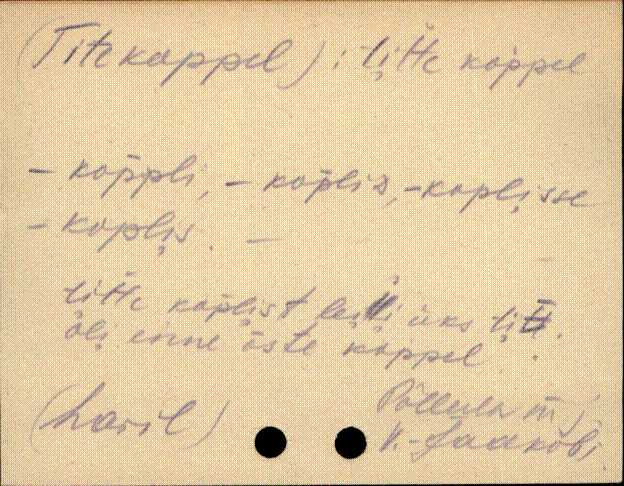 (Titekoppel) : ti̭t̀te kop̀pel
- kop̀pli, - kop̀lis, - kopli̭sse
- kopli̭s. —
ti̭t̀te kopli̭st lei̭t̀i üks ti̭t̀t.
oli̭ enne öste kop̀pel.
(Laoil) Põllula m /
V.-Jaakobi.